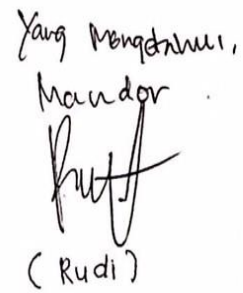 Yang Mengetahui,
Mandor
(Rudi)